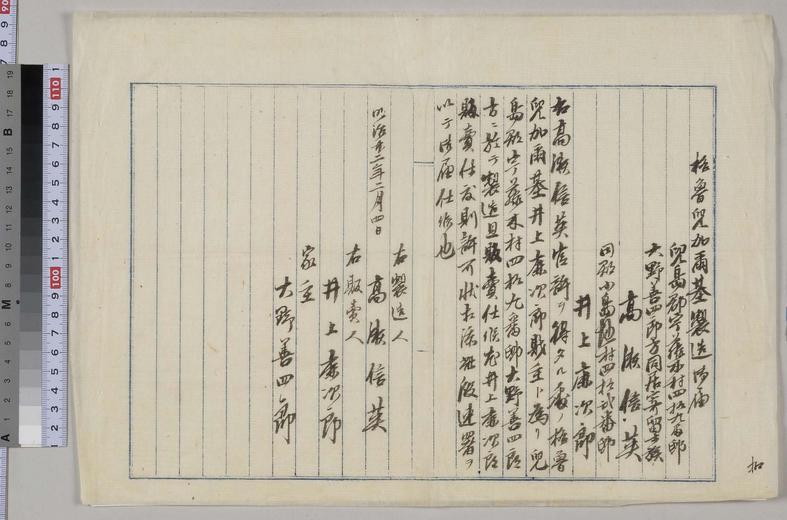 格魯児加爾基製造御届
児島郡宇藤木村四拾九番邸
大野善四郎方同居寄留士族
高濱信英
同郡小島地村四拾弐番邸
井上廉次郎
右高濱信英官許ヲ得タル処ノ格魯
児加爾基井上廉次郎販主ト為リ児
島郡宇藤木村四拾九番邸大野善四郎
方ニ於テ製造且販賣仕候尤井上廉次郎
販賣仕度則許可状相添連署ヲ
以テ御届仕候也
明治十二年二月四日
右製造人
高濱信英
右販賣人
井上廉次郎
家主
大野善四郎